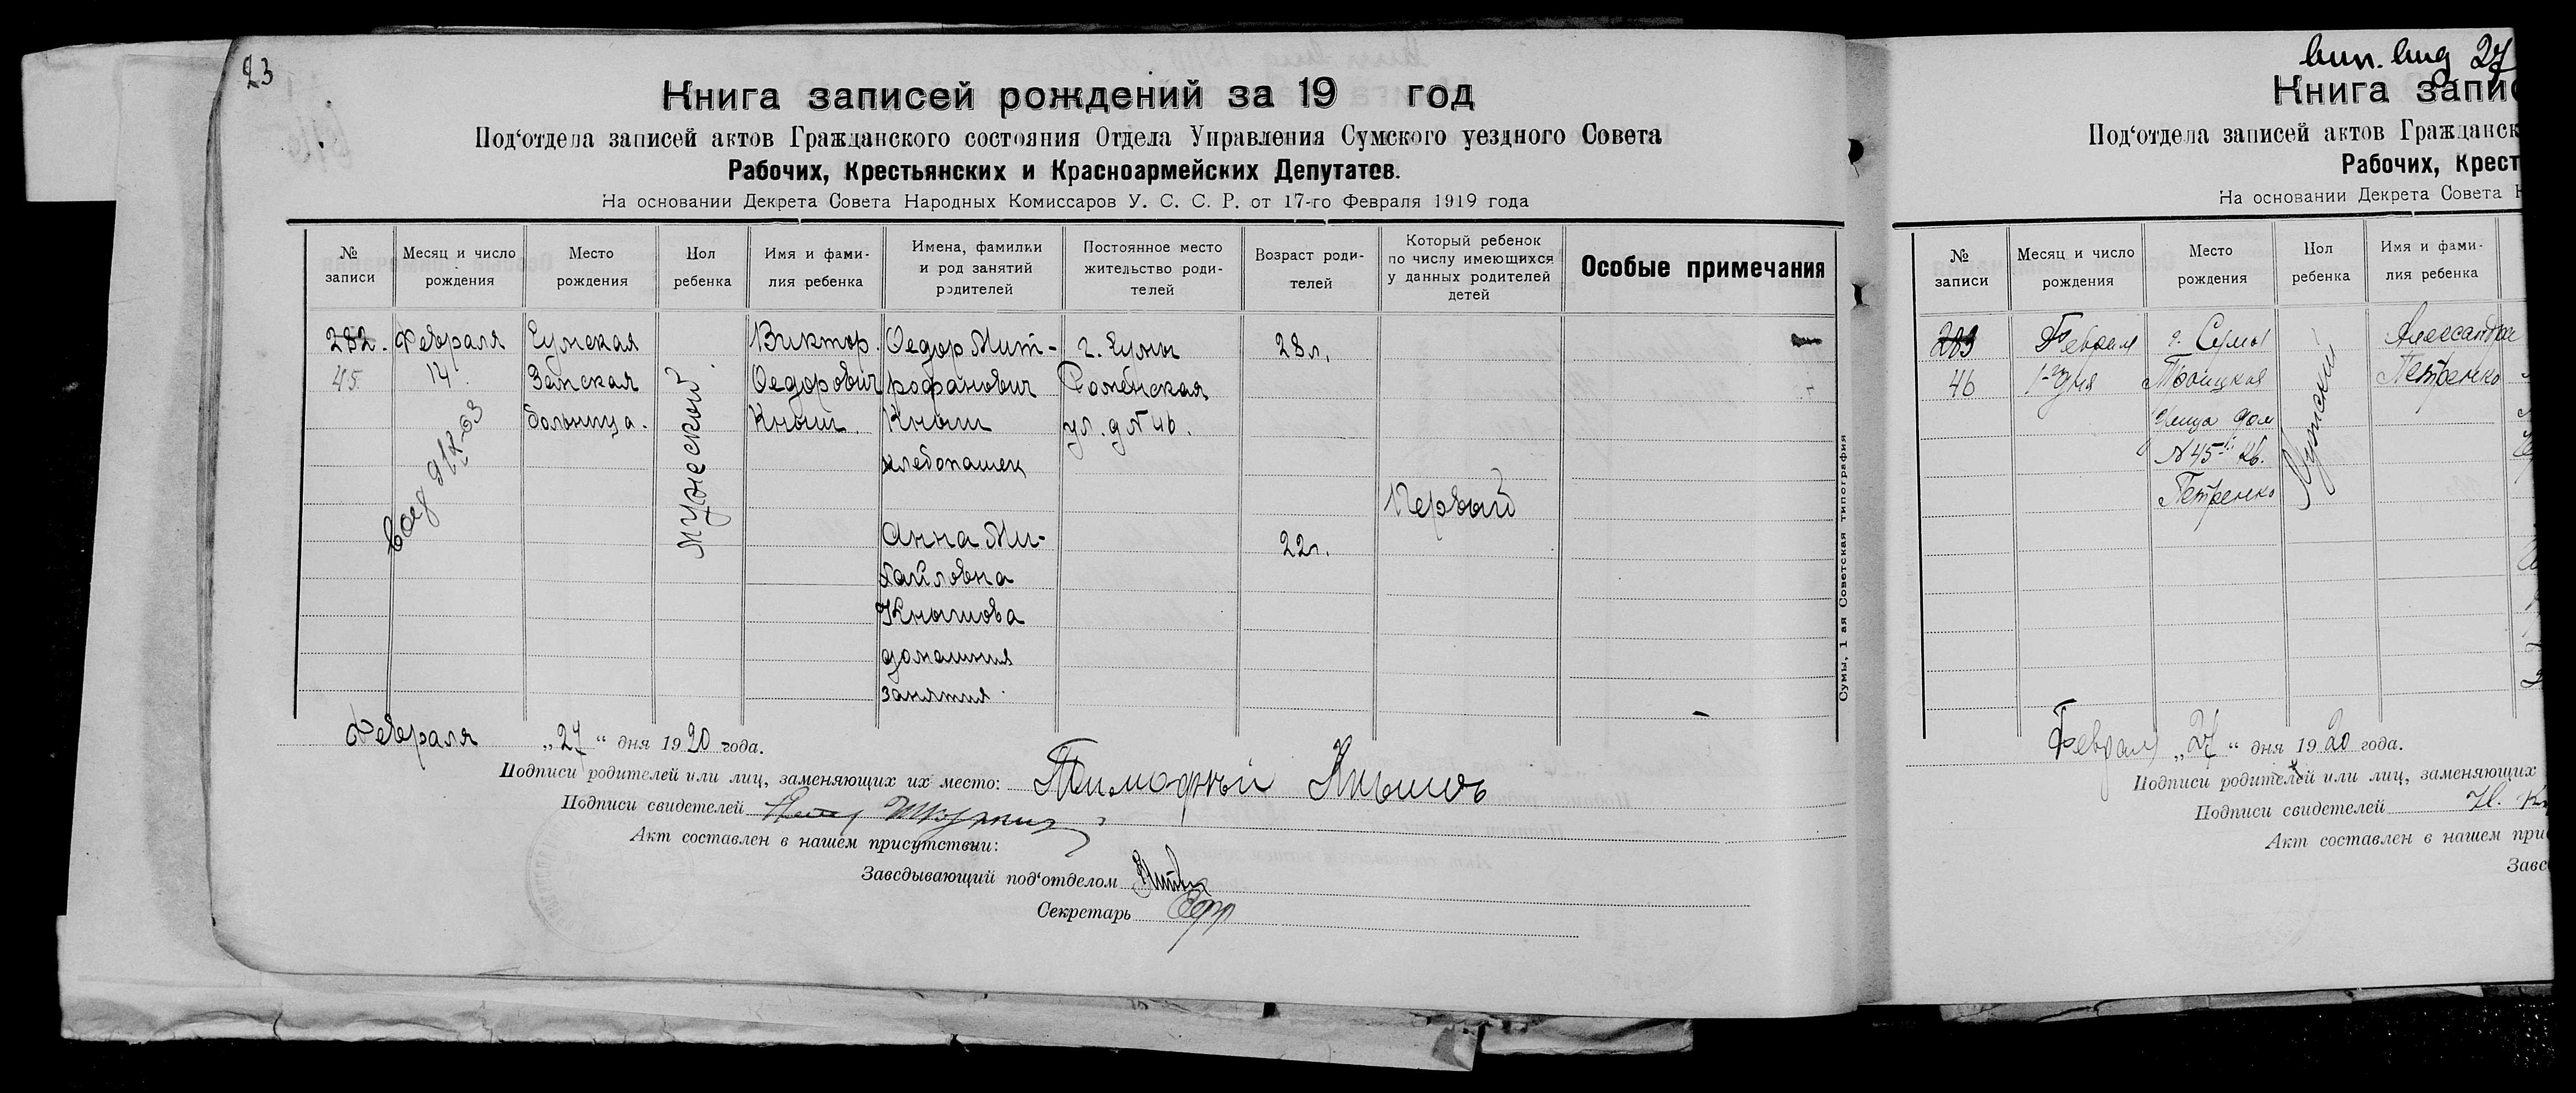 23
Книга записей рождений за 19 год
Под‘отдела записей актов Гражданского состояния Отдела Управления Сумского уездного Совета
Рабочих, Крестьянских и Красноармейских Депутатов.
На основании Декрета Совета Народных Комиссаров У. С. С. Р. от 17-го Февраля 1919 года
№ записи
Месяц и число рождения
Место рождения
Пол ребенка
Имя и фамилия ребенка
Имена, фамилии и род занятий родителей
Постоянное место жительство родителей
Возраст родителей
Который ребенок по числу имеющихся у данных родителей детей
Особые примечания
282.
45.
Февраля
14.
Сумская
Земская
больница.
Мужеский.
Виктор
Федорович
Кныш.
Федор Мит-
рофанович
Кныш
хлебопашец
Анна Ми-
хайловна
Кнышова
домашния
занятия.
г. Сумы
Роменская
ул. д № 46.
28 л.
22 л.
Первый
Февраля „27“ дня 1920 года.
Подписи родителей или лиц, заменяющих их место: Тимофный Кнышъ
Подписи свидетелей
Акт составлен в нашем присутствии:
Заведывающий под‘отделом
Секретарь
Сумы, 1 ая Советская типография
27
Книга запис
Под‘отдела записей актов Гражданск
Рабочих, Крест
На основании Декрета Совета Н
№ записи
Месяц и число рождения
Место рождения
Пол ребенка
Имя и фамилия ребенка
283
46
Февраля
1-го дня
г. Сумы
Троицкая
улица дом
№ 45 кв.
Петренко
Мужский
Александр
Петренко
Февраля „27“ дня 1920 года.
Подписи родителей или лиц, заменяющих
Подписи свидетелей
Акт составлен в нашем при
Заве